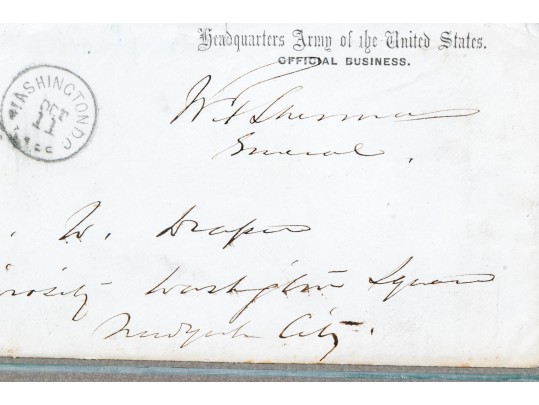 Headquarters Army of the United States.
OFFICIAL BUSINESS.
WASHINGTON D.C.
OCT
11
W T Sherman
General.
. W. Draper
iversity Washington Square
New York City.